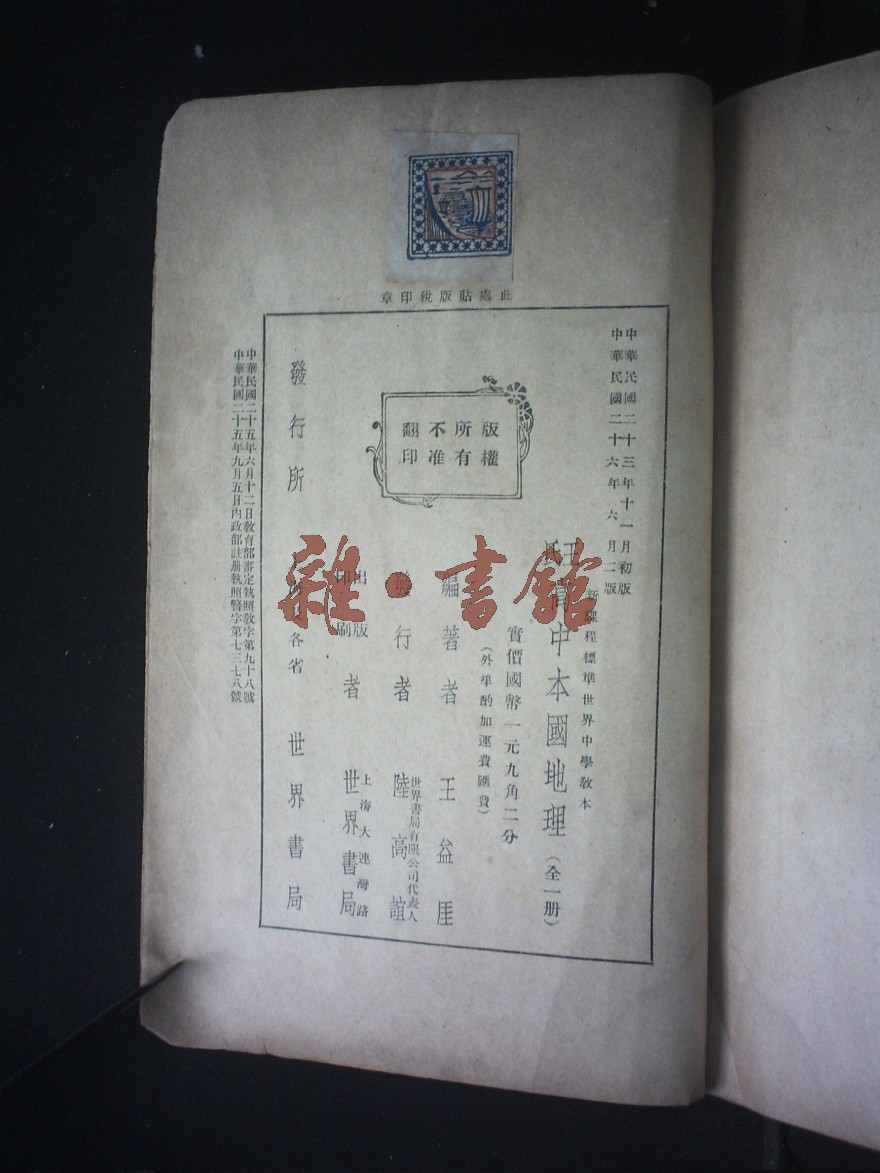 此處貼版稅印章
中華民國二十三年十一月初版
中華民國二十六年六月二版
新課程標準世界中學敎本
王氏高中本國地理(全一册)
實價國幣一元九角二分
(外埠酌加運費匯費)
版權
所有
不准
翻印
編著者 王益厓
發行者 世界書局有限公司代表人 陸高誼
出版印刷者 上海大連灣路 世界書局
發行所 各省 世界書局
中華民國二十五年六月十二日敎育部審定執照敎字第九十八號
中華民國二十五年九月五日內政部註册執照警字第七三七八號
雜·書館